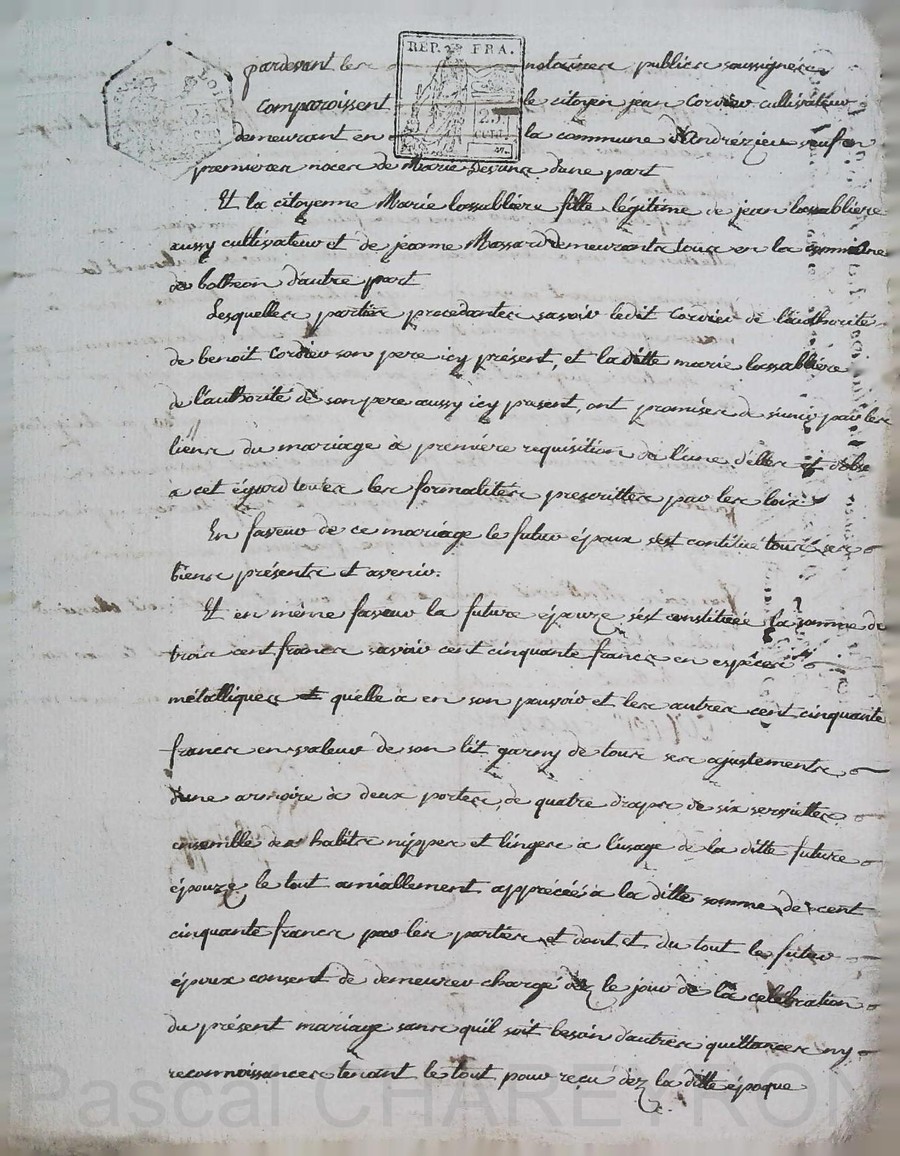 REP. FRA.
25
CENT.
pardevant les notaires publics soussignés
comparoissent le citoyen jean Cordier cultivateur
demeurant en la commune d'Andrézieu veuf en
premieres noces de Marie d'une part
Et la citoyenne Marie lassablière fille légitime de jean lassabliere
aussy cultivateur et de jeanne Massard demeurants tous en la commune
de botheon d'autre part
Lesquelles parties procedantes savoir ledit Cordier de l'authorité
de benoit Cordier son pere icy présent, et la ditte marie lassablière
de l'authorité de son pere aussy icy present, ont promises de s'unir par les
liens du mariage à première requisition de l'une d'elles et d'obs
a cet égard toutes les formalités prescrittes par les loix
En faveur de ce mariage le futur époux s'est contitué tous ses
biens présents et avenir.
Et en même faveur la future épouze s'est constituée la somme de
trois cent francs savoir cent cinquante francs en espèces
métalliques et quélle a en son pouvoir et les autres cent cinquante
francs en valeur de son lit garny de tous ses ajustements
d'une armoire à deux portes, de quatre draps de six serviettes
ensemble des habits nippes et linges a l'usage de la ditte future
épouze le tout amiallement appréciés à la ditte somme de cent
cinquante francs par les parties et dont et du tout le futur
époux consent de demeurer chargé déz le jour de la celébration
du présent mariage sans quil soit besoin d'autres quittances ny
reconnoissances tenant le tout pour reçu déz la ditte époque
Pascal CHAREYRON